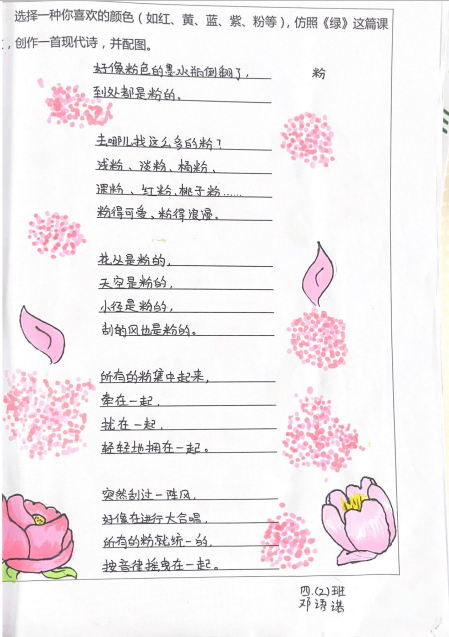 选择一种你喜欢的颜色（如红、黄、蓝、紫、粉等），仿照《绿》这篇课
，创作一首现代诗，并配图。
粉
好像粉色的墨水瓶倒翻了，
到处都是粉的。
去哪儿找这么多的粉？
浅粉、淡粉、橘粉、
课粉、红粉、桃子粉……
粉得可爱、粉得浪漫。
花丛是粉的，
天空是粉的，
小径是粉的，
刮的风也是粉的。
所有的粉集中起来，
牵在一起，
扰在一起，
轻轻地拥在一起。
突然刮过一阵风，
好像在进行大合唱，
所有的粉就统一的，
按音律摇曳在一起。
四.(2)班
邓